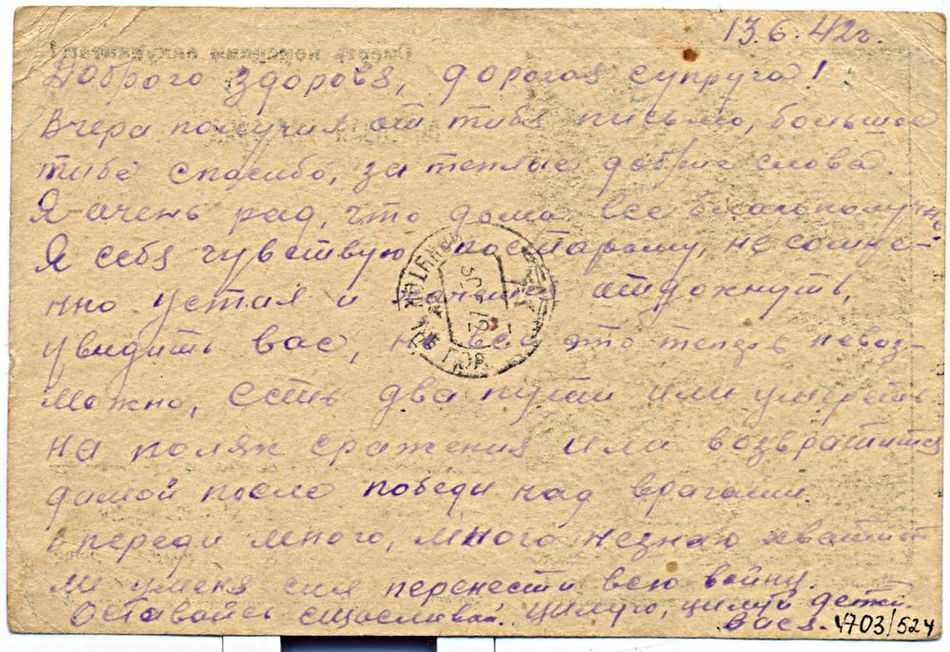 13.6.42г.
Доброго здоровя, дорогая супруга!
Вчера получил от тибя письмо, большое
тибе спасибо, за теплые добрые слова.
Я-очень рад, что дома все благополучно.
Я себя чувствую постарому, несомне-
нно устал и отдохнуть,
увидить вас, но все это теперь невоз-
можно, Есть два пути или умереть
на полях сражения или возвратится
дамой после победы над врагами.
впереди много, много незнаю хватит
ли уменя сил перенести всю войну.
Оставайсь счасливай. Цилую, цилуй детей.
Вася.
1703/524